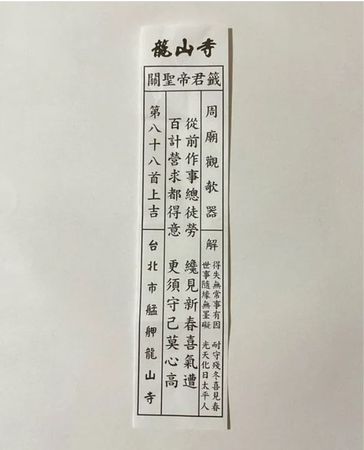 龍山寺
關聖帝君籤
周廟觀欹器
解
得失無常事有因 耐守殘冬喜見春
世事隨緣無罣礙 光天化日太平人
從前作事總徒勞 纔見新春喜氣遭
百計營求都得意 更須守己莫心高
第八十八首上吉
台北市艋舺龍山寺